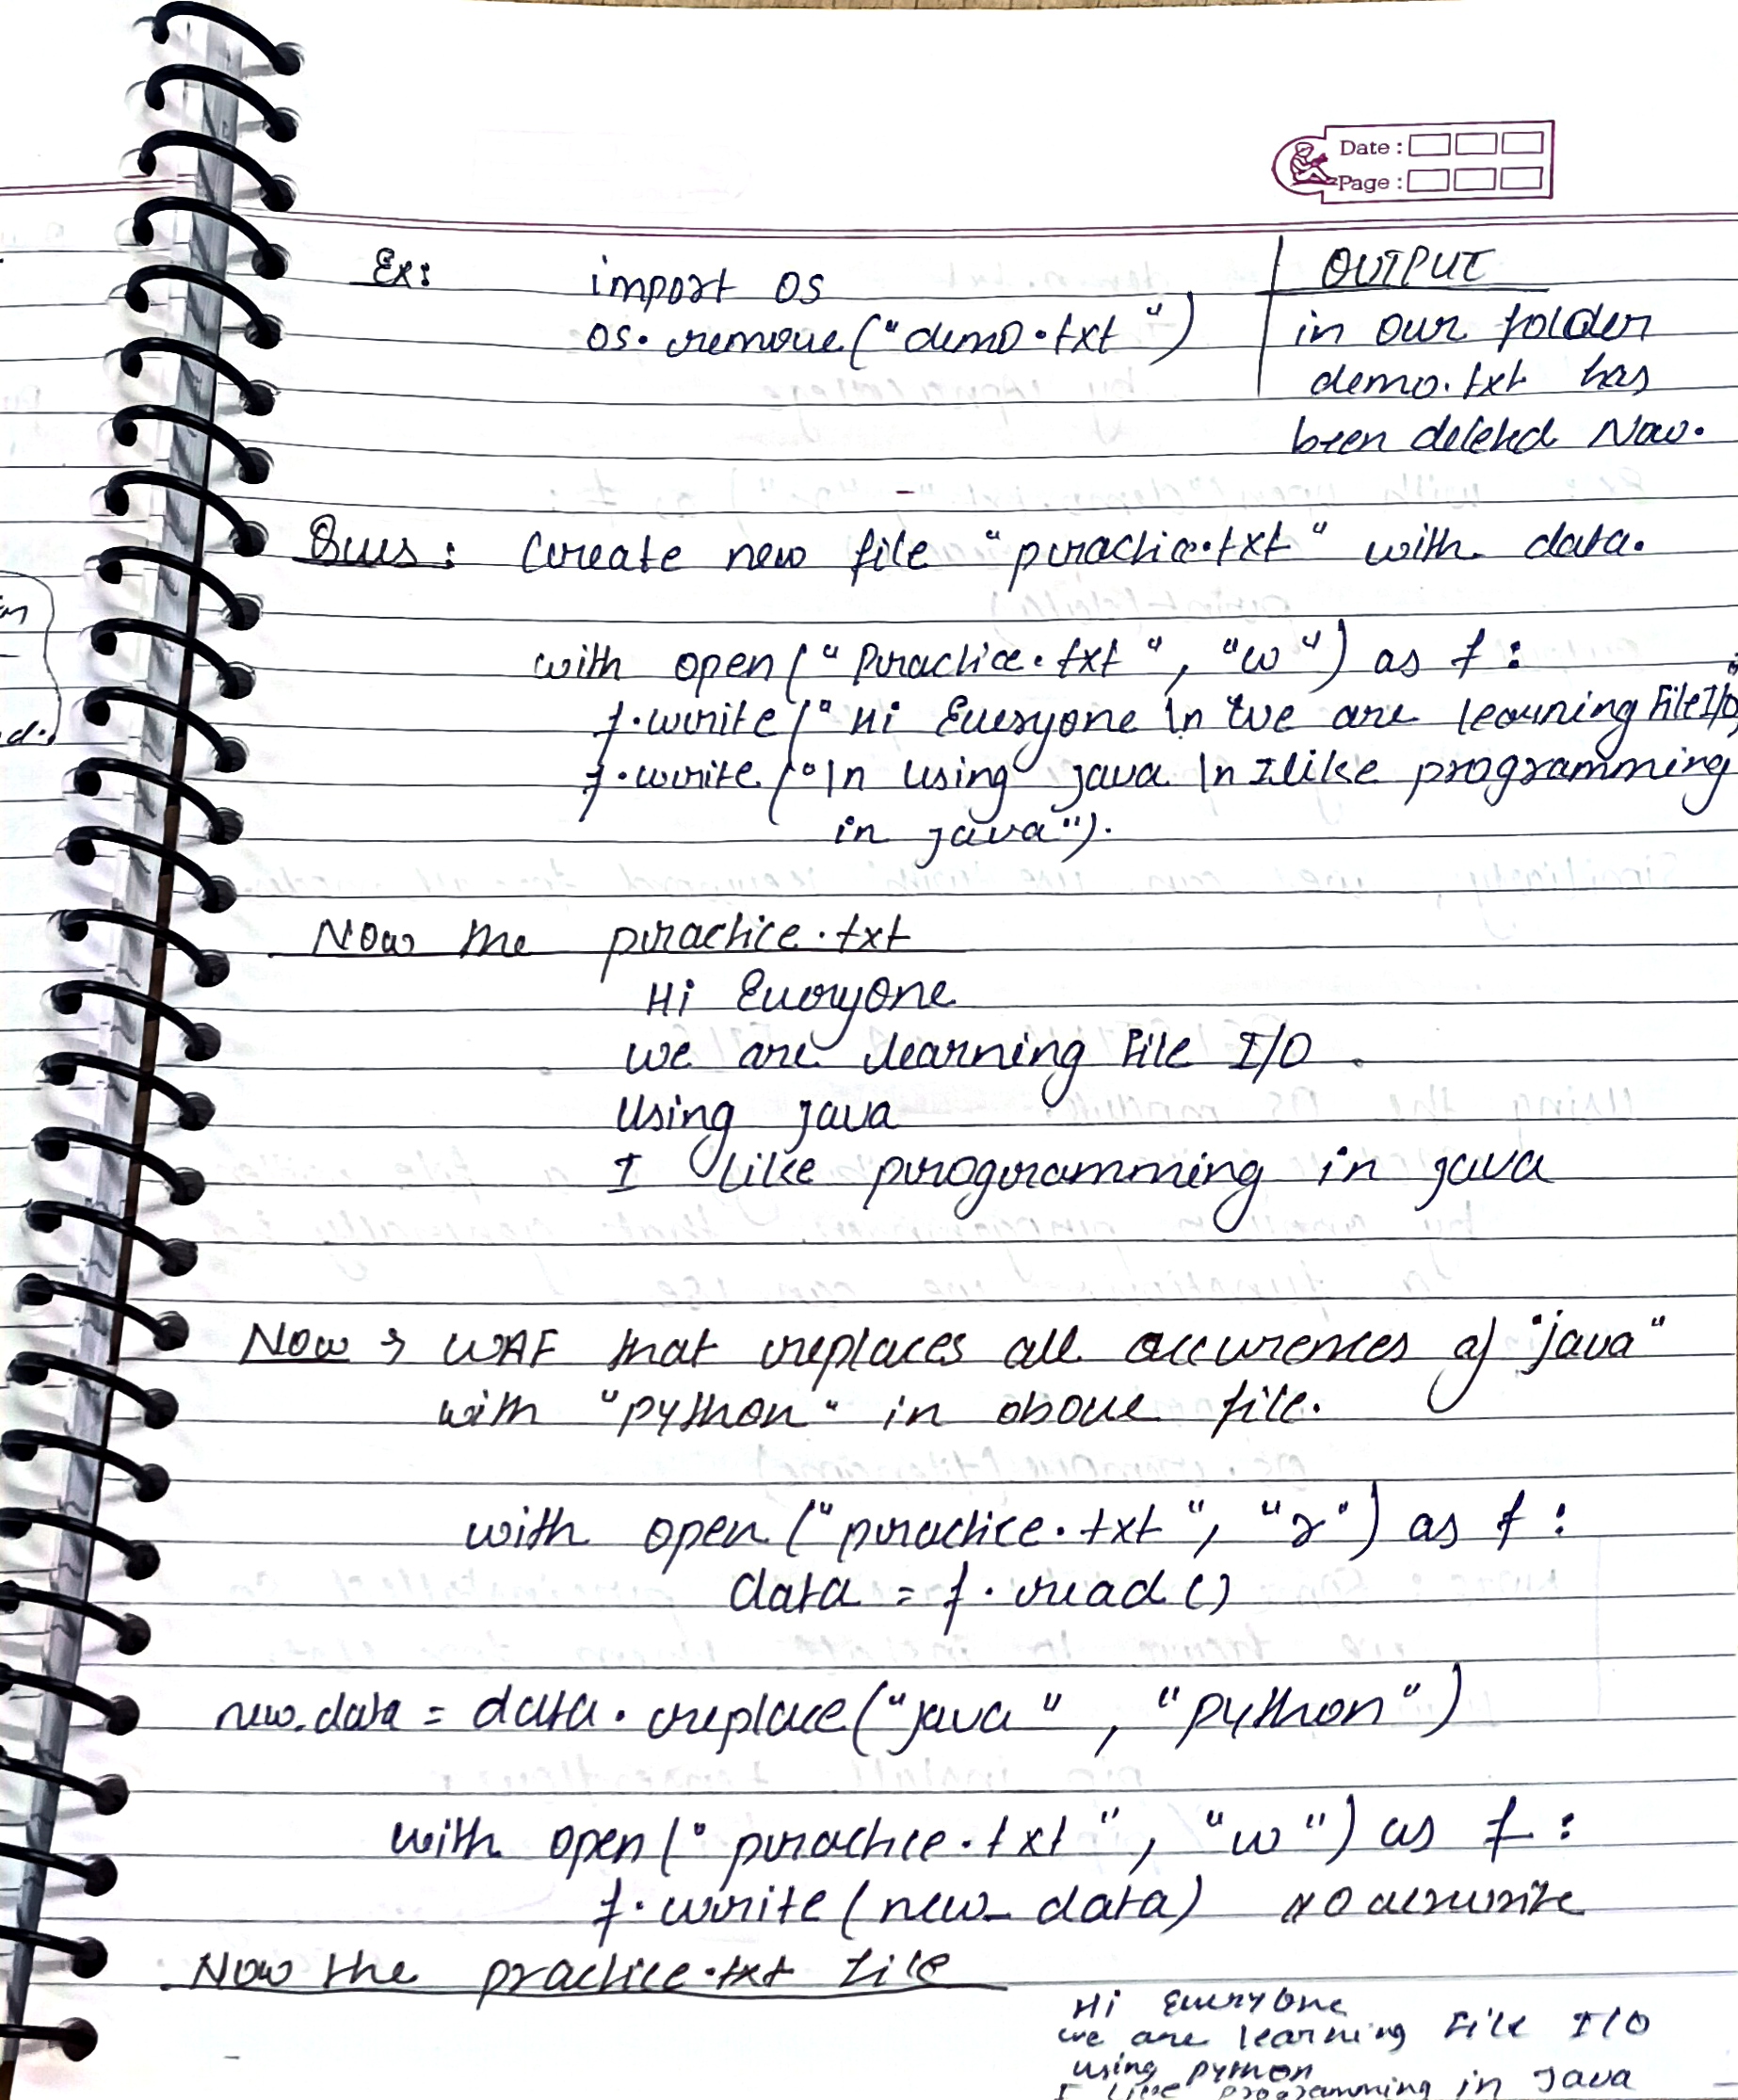 Date :
Page :
Ex: import os
os.remove("demo.txt")
OUTPUT
in our folder
demo.txt has
been deleted Now.
Ques: Create new file "practice.txt" with data.
with open("Practice.txt", "w") as f:
f.write("Hi Everyone \n we are learning File I/O
f.write("\n using java \n I like programming
in java").
Now the practice.txt
Hi Everyone
we are learning File I/O.
Using java
I like programming in java
Now → WAF that replaces all occurences of "java"
with "python" in above file.
with open("practice.txt", "r") as f:
data = f.read()
new_data = data.replace("java", "python")
with open("practice.txt", "w") as f:
f.write(new_data) #Overwrite
Now the practice.txt file
Hi Everyone
we are learning File I/O
using python
I like programming in Java